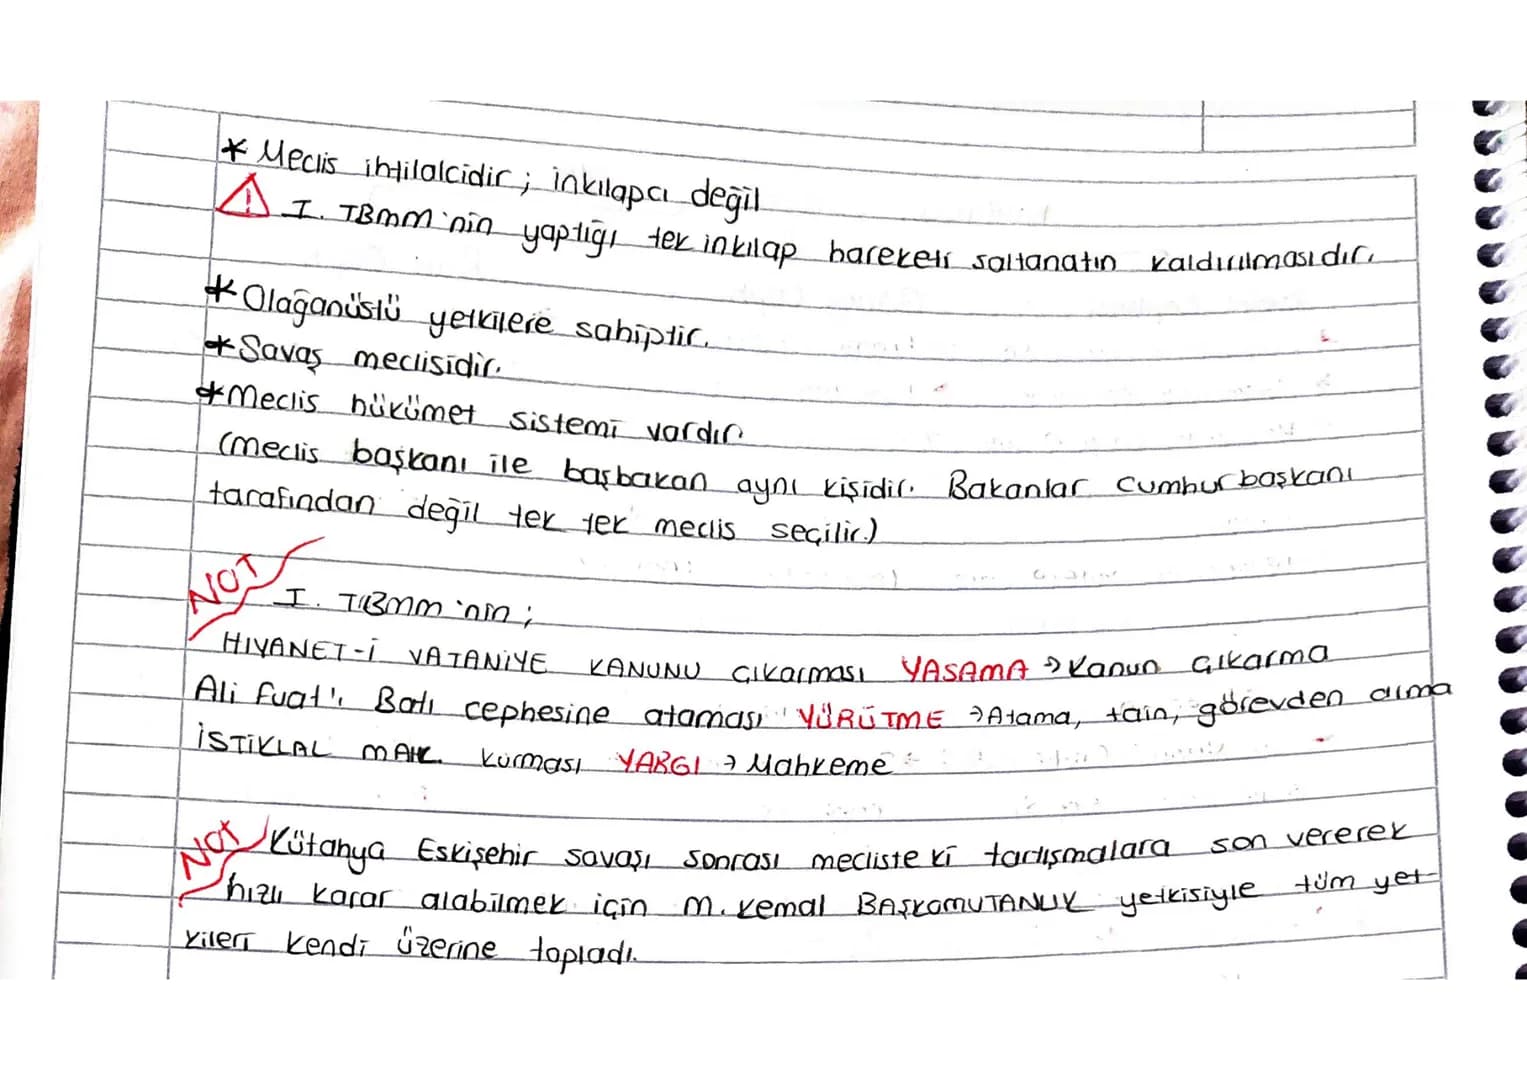 * Meclis ihtilalcidir; inkılapcı değil
I. TBMM'nin yaptığı tek inkılap hareketi saltanatın kaldırılmasıdır.
* Olağanüstü yetkilere sahiptir.
* Savaş meclisidir.
* Meclis hükümet sistemi vardır
(meclis başkanı ile başbakan aynı kişidir. Bakanlar cumhurbaşkanı
tarafından değil tek tek meclis seçilir.)
NOT
I. TBMM'nin;
HIYANET-İ VATANİYE KANUNU çıkarması YASAMA → Kanun çıkarma
Ali Fuat'ı Batı cephesine ataması YÜRÜTME → Atama, tain, görevden alma
İSTİKLAL MAH. kurması YARGI → Mahkeme
NOT Kütahya Eskişehir savaşı sonrası mecliste ki tartışmalara son vererek
hızlı karar alabilmek için M. Kemal BAŞKOMUTANLIK yetkisiyle tüm yet-
kileri kendi üzerine topladı.